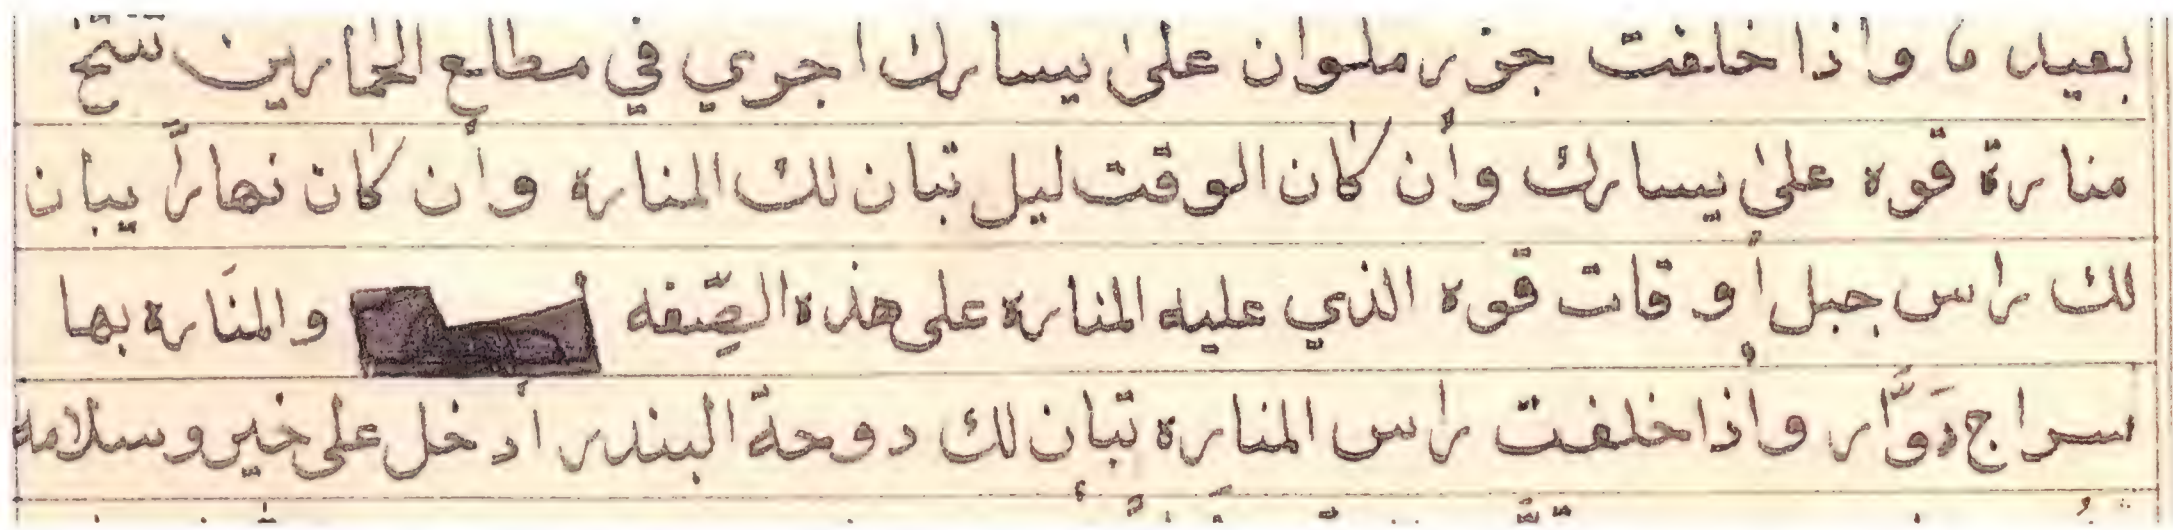 بعيد، واذا خلفت جزر ملوان على يسارك اجري في مطلع الحمارين تنتخ
منارة قوه على يسارك وأن كان الوقت ليل تبان لك المناره وأن كان نهاراً يبان
لك راس جبل أو قات قوه الذي عليه المناره على هذه الصِّفه والمنَاره بها
سراج دَوَّار وأذا خلفت راس المناره تبأن لك دوحة البندر أدخل على خير وسلامه